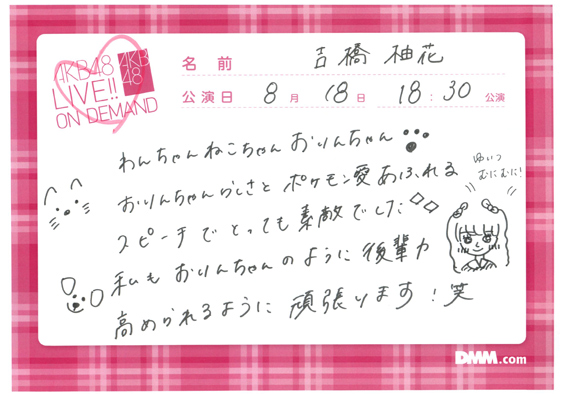 AKB48
LIVE!!
ON DEMAND
AKB
48
名前 吉橋 柚花
公演日 8月 18日 18:30 公演
わんちゃんねこちゃんおりんちゃん
おりんちゃんらしさとポケモン愛あふれる
スピーチでとっても素敵でした
私もおりんちゃんのように後輩力
高められるように頑張ります!笑
ゆいつ
むにむに!
DMM.com